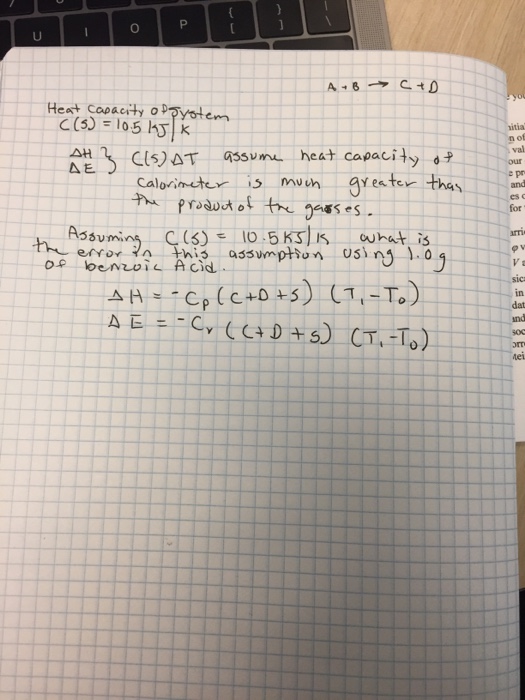 U I O P { [ } ] | \
A + B → C + D
Heat Capacity of System
C(S) = 10.5 kJ/K
ΔH
ΔE } C(S) ΔT assume heat capacity of
Calorimeter is much greater than
the product of the gasses.
Assuming C(S) = 10.5 KJ/K what is
the error in this assumption using 1.0g
of benzoic Acid.
ΔH = -Cp (C+D+S) (T₁-T₀)
ΔE = -Cv (C+D+S) (T₁-T₀)
you
nitia
n of
val
our
e pr
and
es c
for
arri
V
sic
in
dat
and
soc